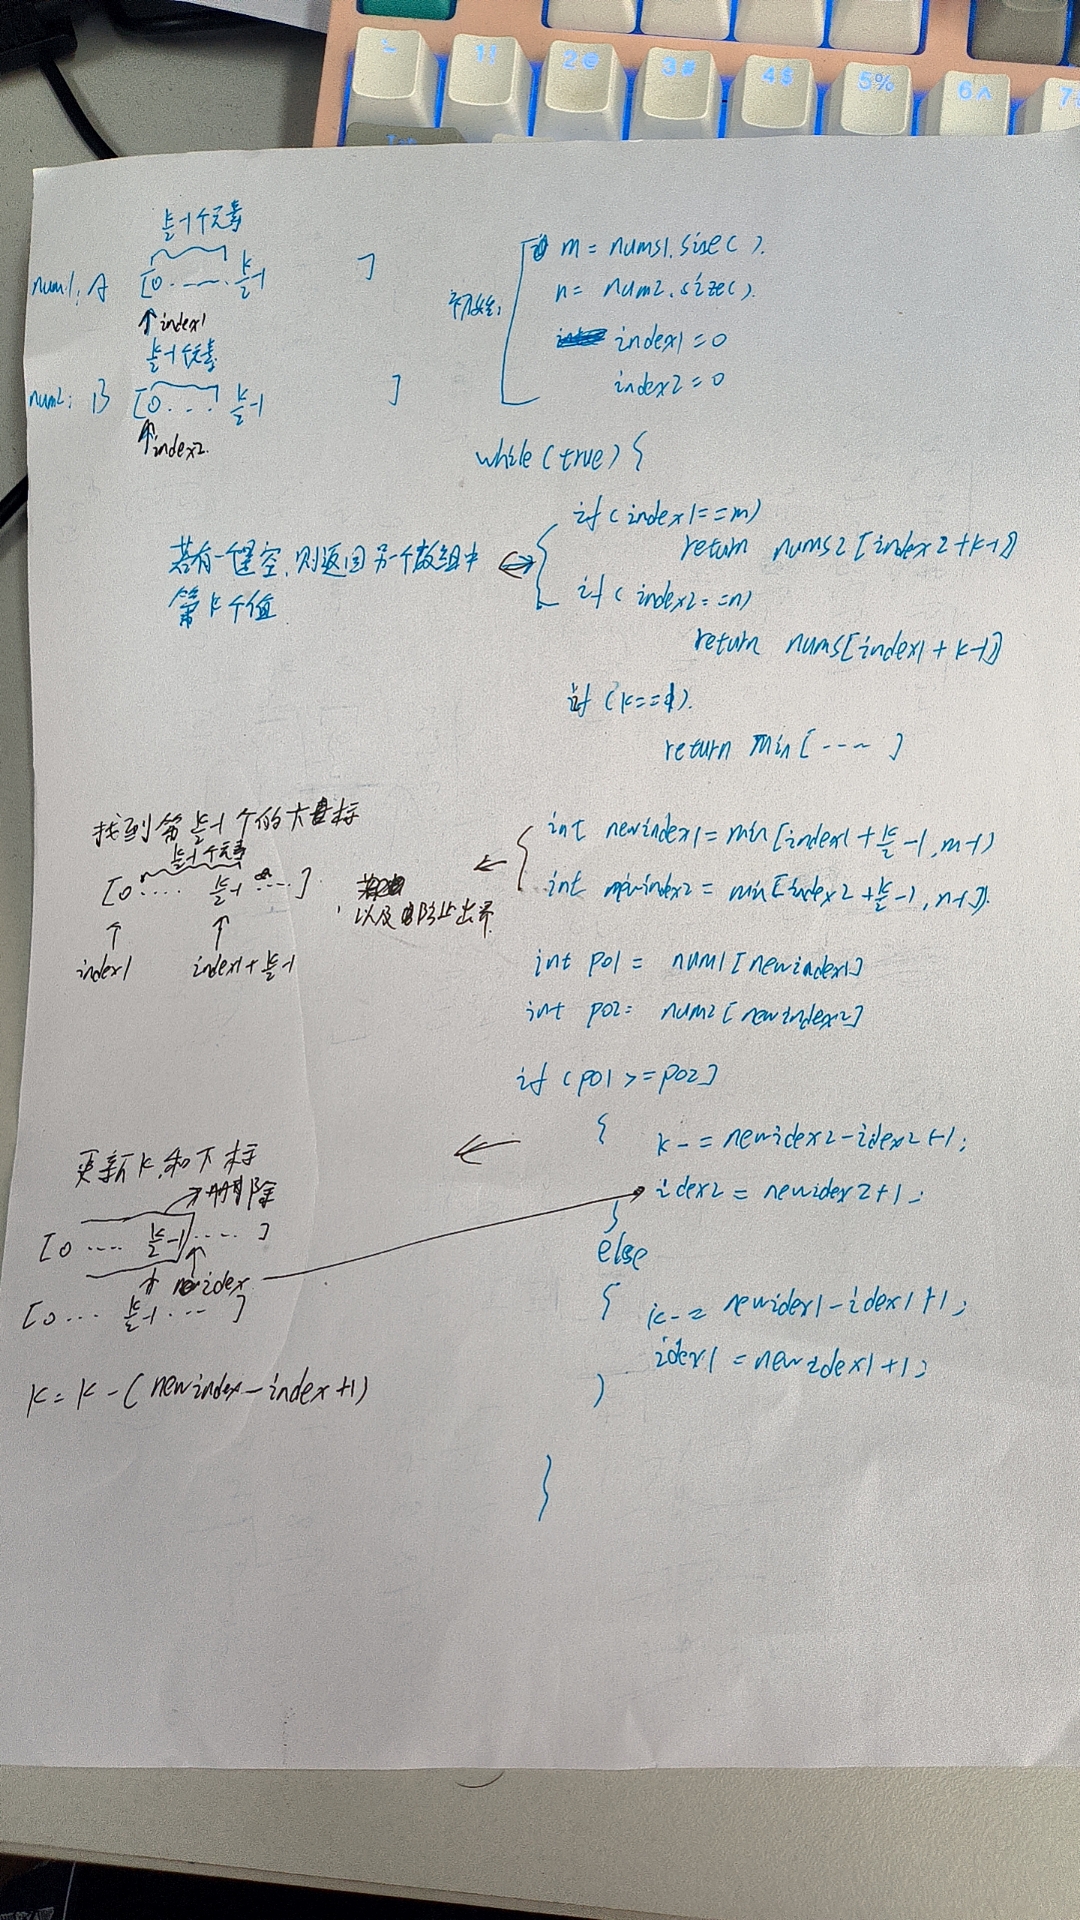 ~ 1! 2@ 3# 4$ 5% 6^ 7
k/2-1个元素
num1: A [0 ...... k/2-1 ]
↑ index1
k/2-1个元素
num2: B [0 ... k/2-1 ]
↑ index2.
初始:
m = nums1.size( ).
n = num2.size().
index1 = 0
index2 = 0
while (true) {
若有一个是空,则返回另一个数组中
第k个值
if ( index1 == m)
return nums2 [index2+k-1]
if ( index2 == n)
return nums[index1 + k-1]
if (k==1).
return min [ ---- ]
找到第k/2-1个的下标
k/2-1个元素
[0 ..... k/2-1 ..... ]
index1
index1+k/2-1
以及防止出界
int newindex1 = min [index1 + k/2 -1, m-1)
int newindex2 = min[index2 + k/2 -1, n-1]).
int po1 = num1 [newindex1]
int po2 = num2 [newindex2]
if (po1 >= po2]
{
k -= newidex2-idex2+1;
idex2 = newidex2+1;
}
else
{
k-= newidex1-idex1+1;
idex1 = newidex1+1;
}
}
更新k,和下标
→删除
[0 .... k/2-1 ..... ]
newidex
[0 ... k/2-1 ... ]
k = k - (newindex-index+1)